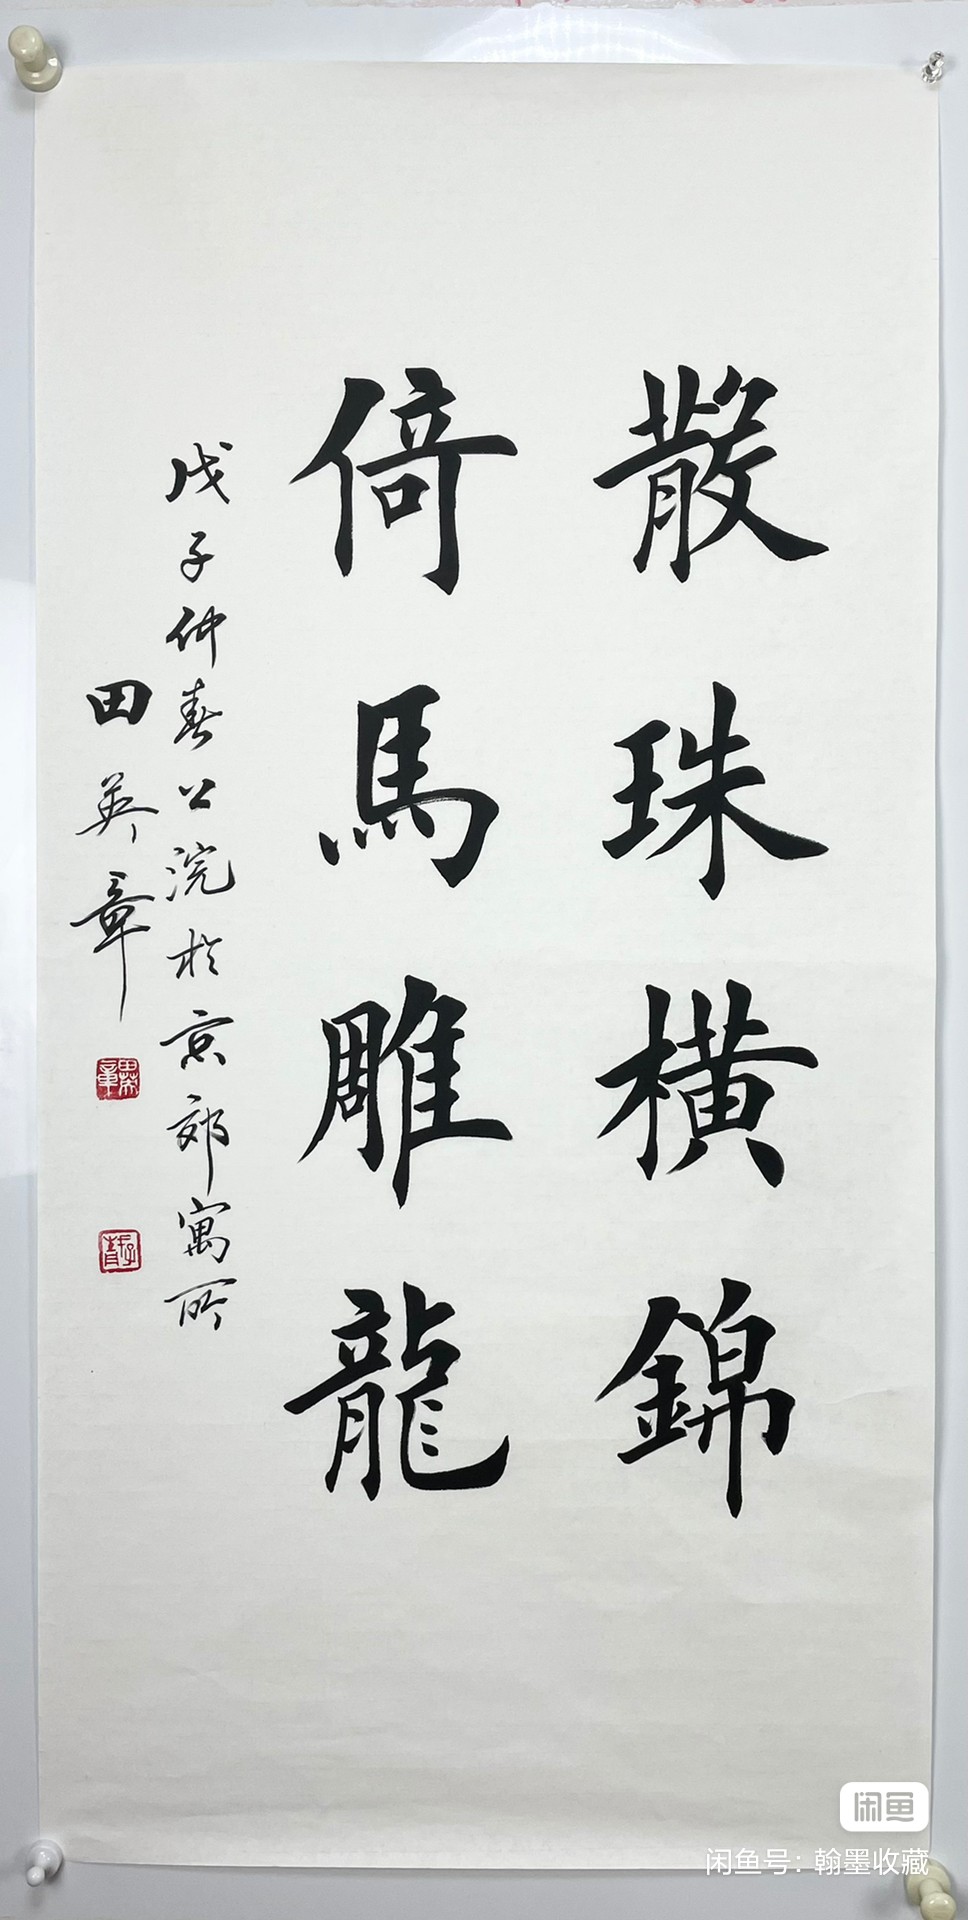 散珠橫錦
倚馬雕龍
戊子仲春公浣於京郊寓所
田英章
闲鱼
闲鱼号：翰墨收藏